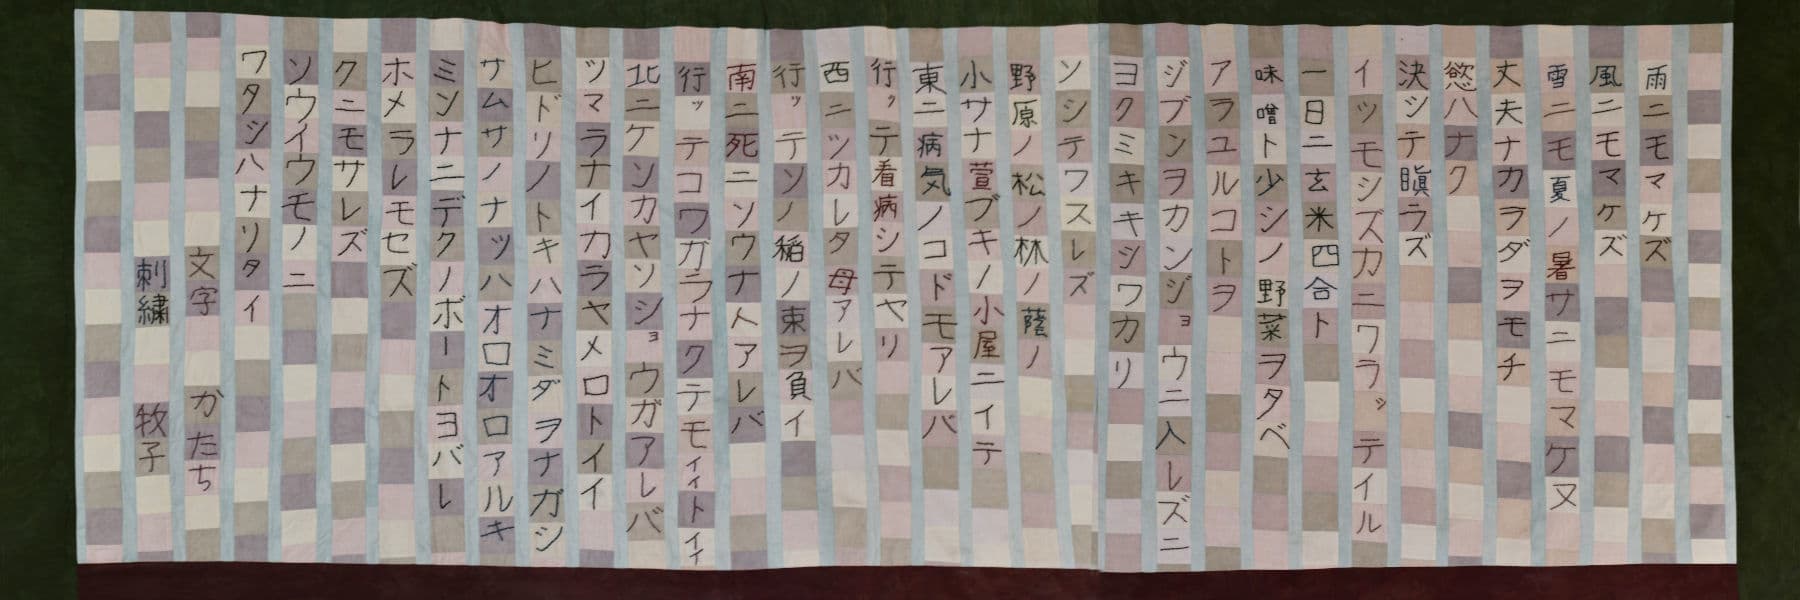 雨ニモマケズ
風ニモマケズ
雪ニモ夏ノ暑サニモマケヌ
丈夫ナカラダヲモチ
慾ハナク
決シテ瞋ラズ
イツモシズカニワラッテイル
一日ニ玄米四合ト
味噌ト少シノ野菜ヲタベ
アラユルコトヲ
ジブンヲカンジョウニ入レズニ
ヨクミキキシワカリ
ソシテワスレズ
野原ノ松ノ林ノ蔭ノ
小サナ萱ブキノ小屋ニイテ
東ニ病気ノコドモアレバ
行ッテ看病シテヤリ
西ニツカレタ母アレバ
行ッテソノ稲ノ束ヲ負イ
南ニ死ニソウナ人アレバ
行ッテコワガラナクテモイイトイイ
北ニケンカヤソショウガアレバ
ツマラナイカラヤメロトイイ
ヒドリノトキハナミダヲナガシ
サムサノナツハオロオロアルキ
ミンナニデクノボートヨバレ
ホメラレモセズ
クニモサレズ
ソウイウモノニ
ワタシハナリタイ
文字 かたち
刺繍 牧子